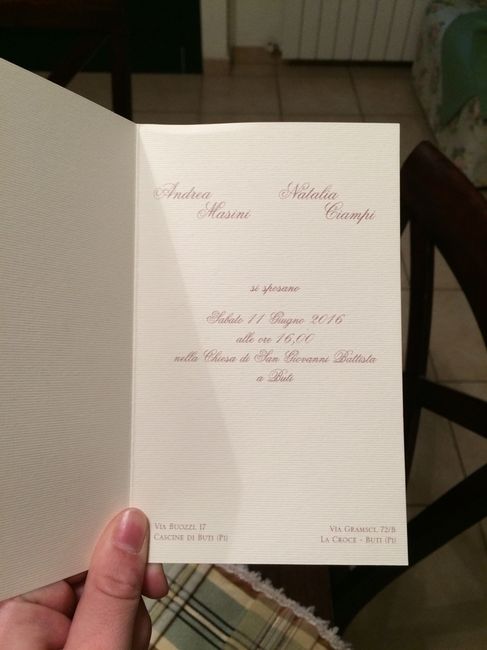 Andrea Masini
Natalia Ciampi
si sposano
Sabato 11 Giugno 2016
alle ore 16,00
nella Chiesa di San Giovanni Battista
a Buti
Via Buozzi, 17
Cascine di Buti (Pi)
Via Gramsci, 72/B
La Croce - Buti (Pi)